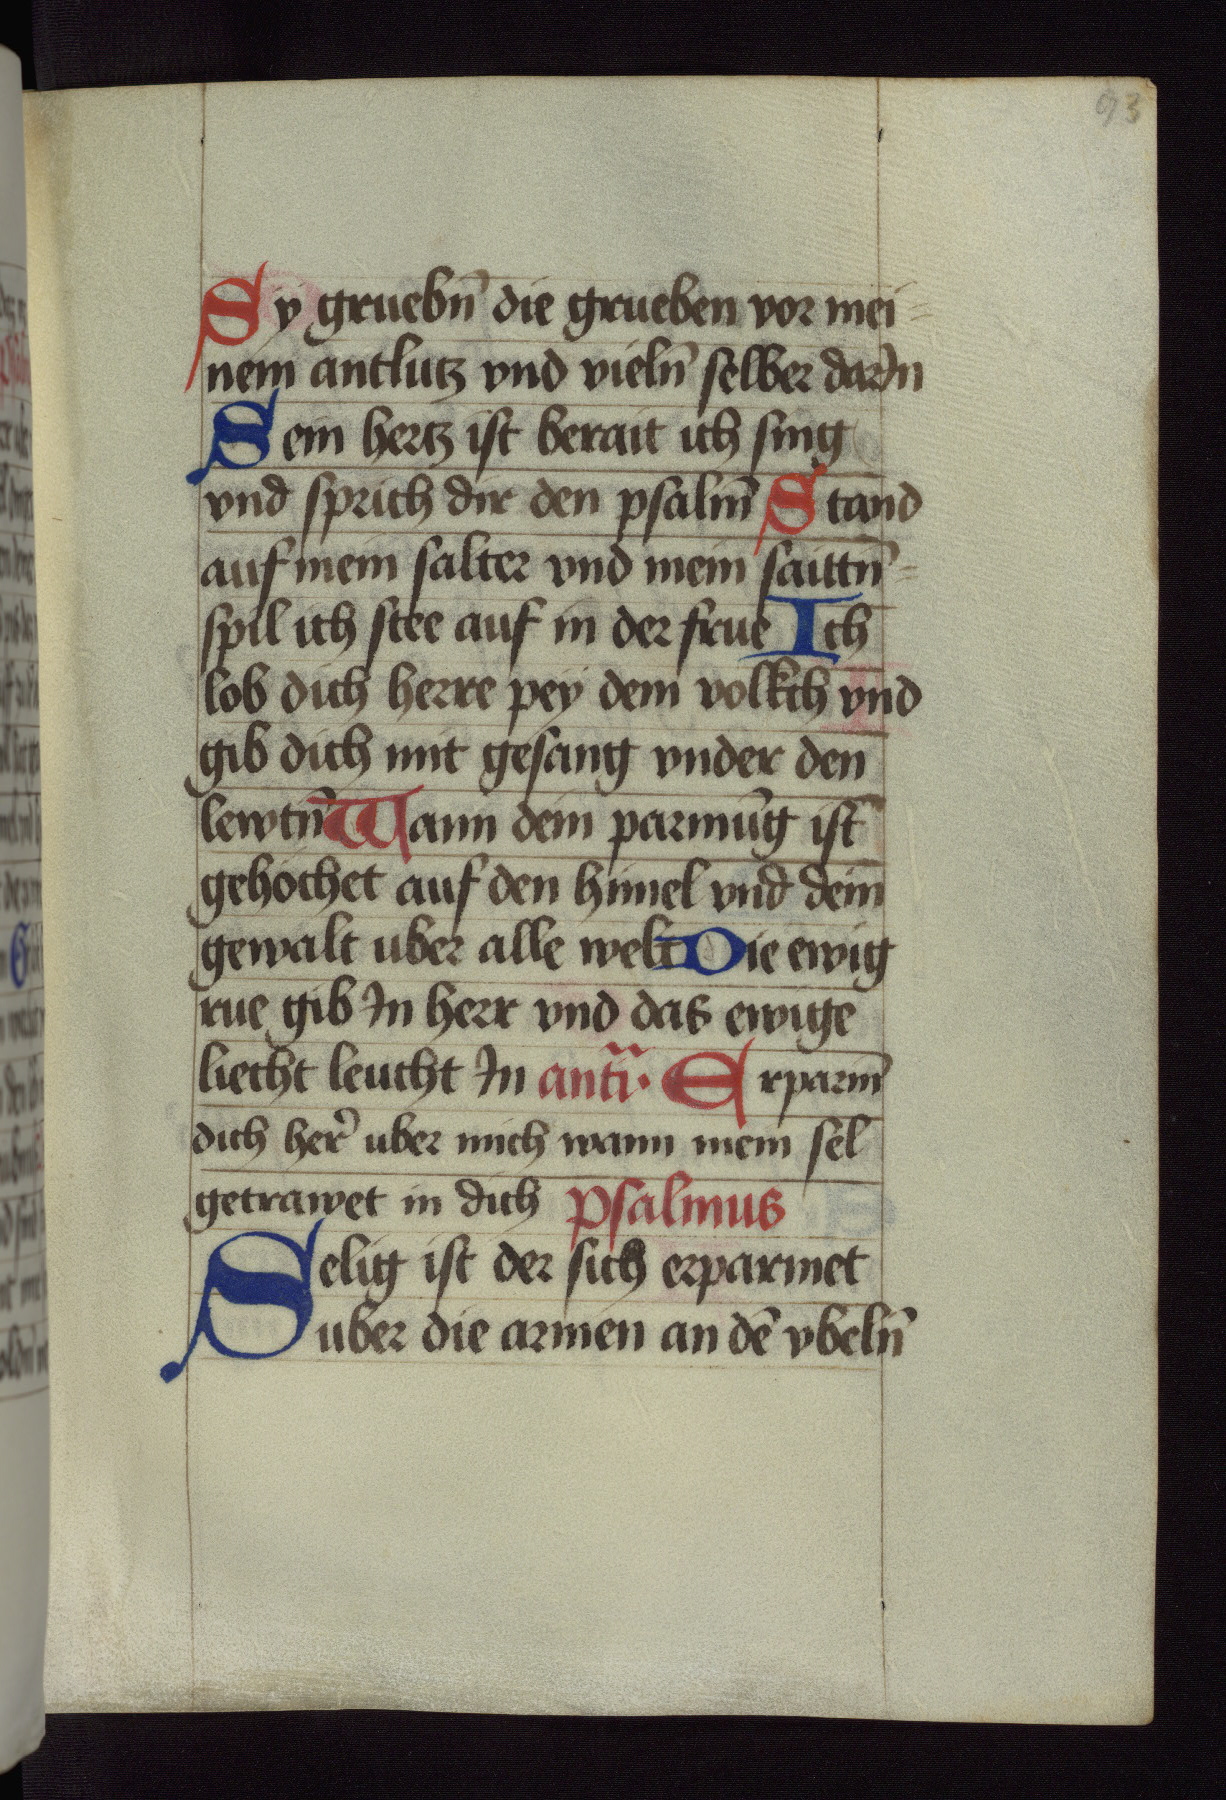 93
Sÿ gruebn̄ die grueben vor mei=
nem antlutz vnd vieln̄ selber darJn
Sein hertz ist berait ich sing
vnd sprich dir den psalm̄ Stand
auf mein salter vnd mein saittn̄=
spil ich stee auf in der frue Ich
lob dich herre peÿ dem volkch vnd
gib dich mit gesang vnder den
lewtn̄ Wann dein parmūg ist
gehöchet auf den himel vnd dein
gewalt uber alle welt Die ewig
rue gib In herr vnd das ewige
liecht leucht In anti. Erparm̄
dich her̄ uber mich wann mein sel
getrawet in dich Psalmus
Selig ist der sich erparmet
uber die armen an dē vbeln̄